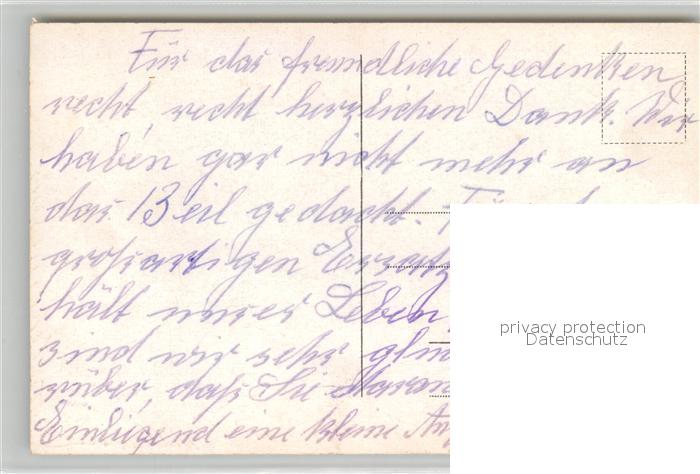 Für das freundliche Gedenken
recht, recht herzlichen Dank. Wir
haben gar nicht mehr an
das Beil gedacht. Für
großartigen Ersatz
hält unser Leben
sind wir sehr
rüber, daß Sie
Einliegend eine kleine
privacy protection
Datenschutz